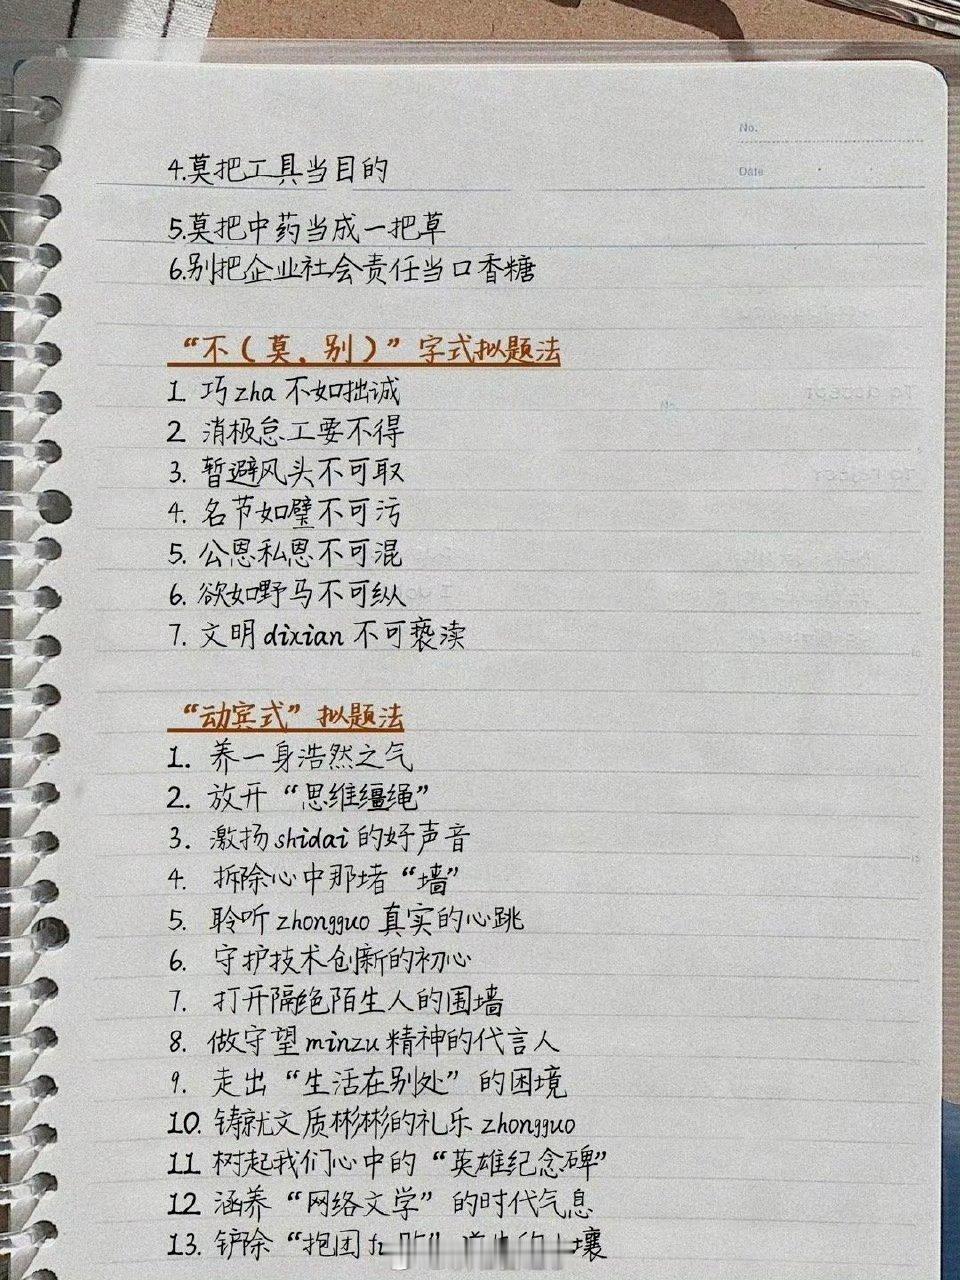 No.
Date
4.莫把工具当目的
5.莫把中药当成一把草
6.别把企业社会责任当口香糖
“不（莫、别）”字式拟题法
1. 巧zha不如拙诚
2 消极怠工要不得
3. 暂避风头不可取
4. 名节如璧不可污
5. 公恩私恩不可混
6. 欲如野马不可纵
7. 文明dixian不可亵渎
“动宾式”拟题法
1. 养一身浩然之气
2. 放开“思维缰绳”
3. 激扬shidai的好声音
4. 拆除心中那堵“墙”
5. 聆听zhongguo真实的心跳
6. 守护技术创新的初心
7. 打开隔绝陌生人的围墙
8. 做守望minzu精神的代言人
9. 走出“生活在别处”的困境
10. 铸就文质彬彬的礼乐zhongguo
11 树起我们心中的“英雄纪念碑”
12 涵养“网络文学”的时代气息
13. 铲除“抱团 壤